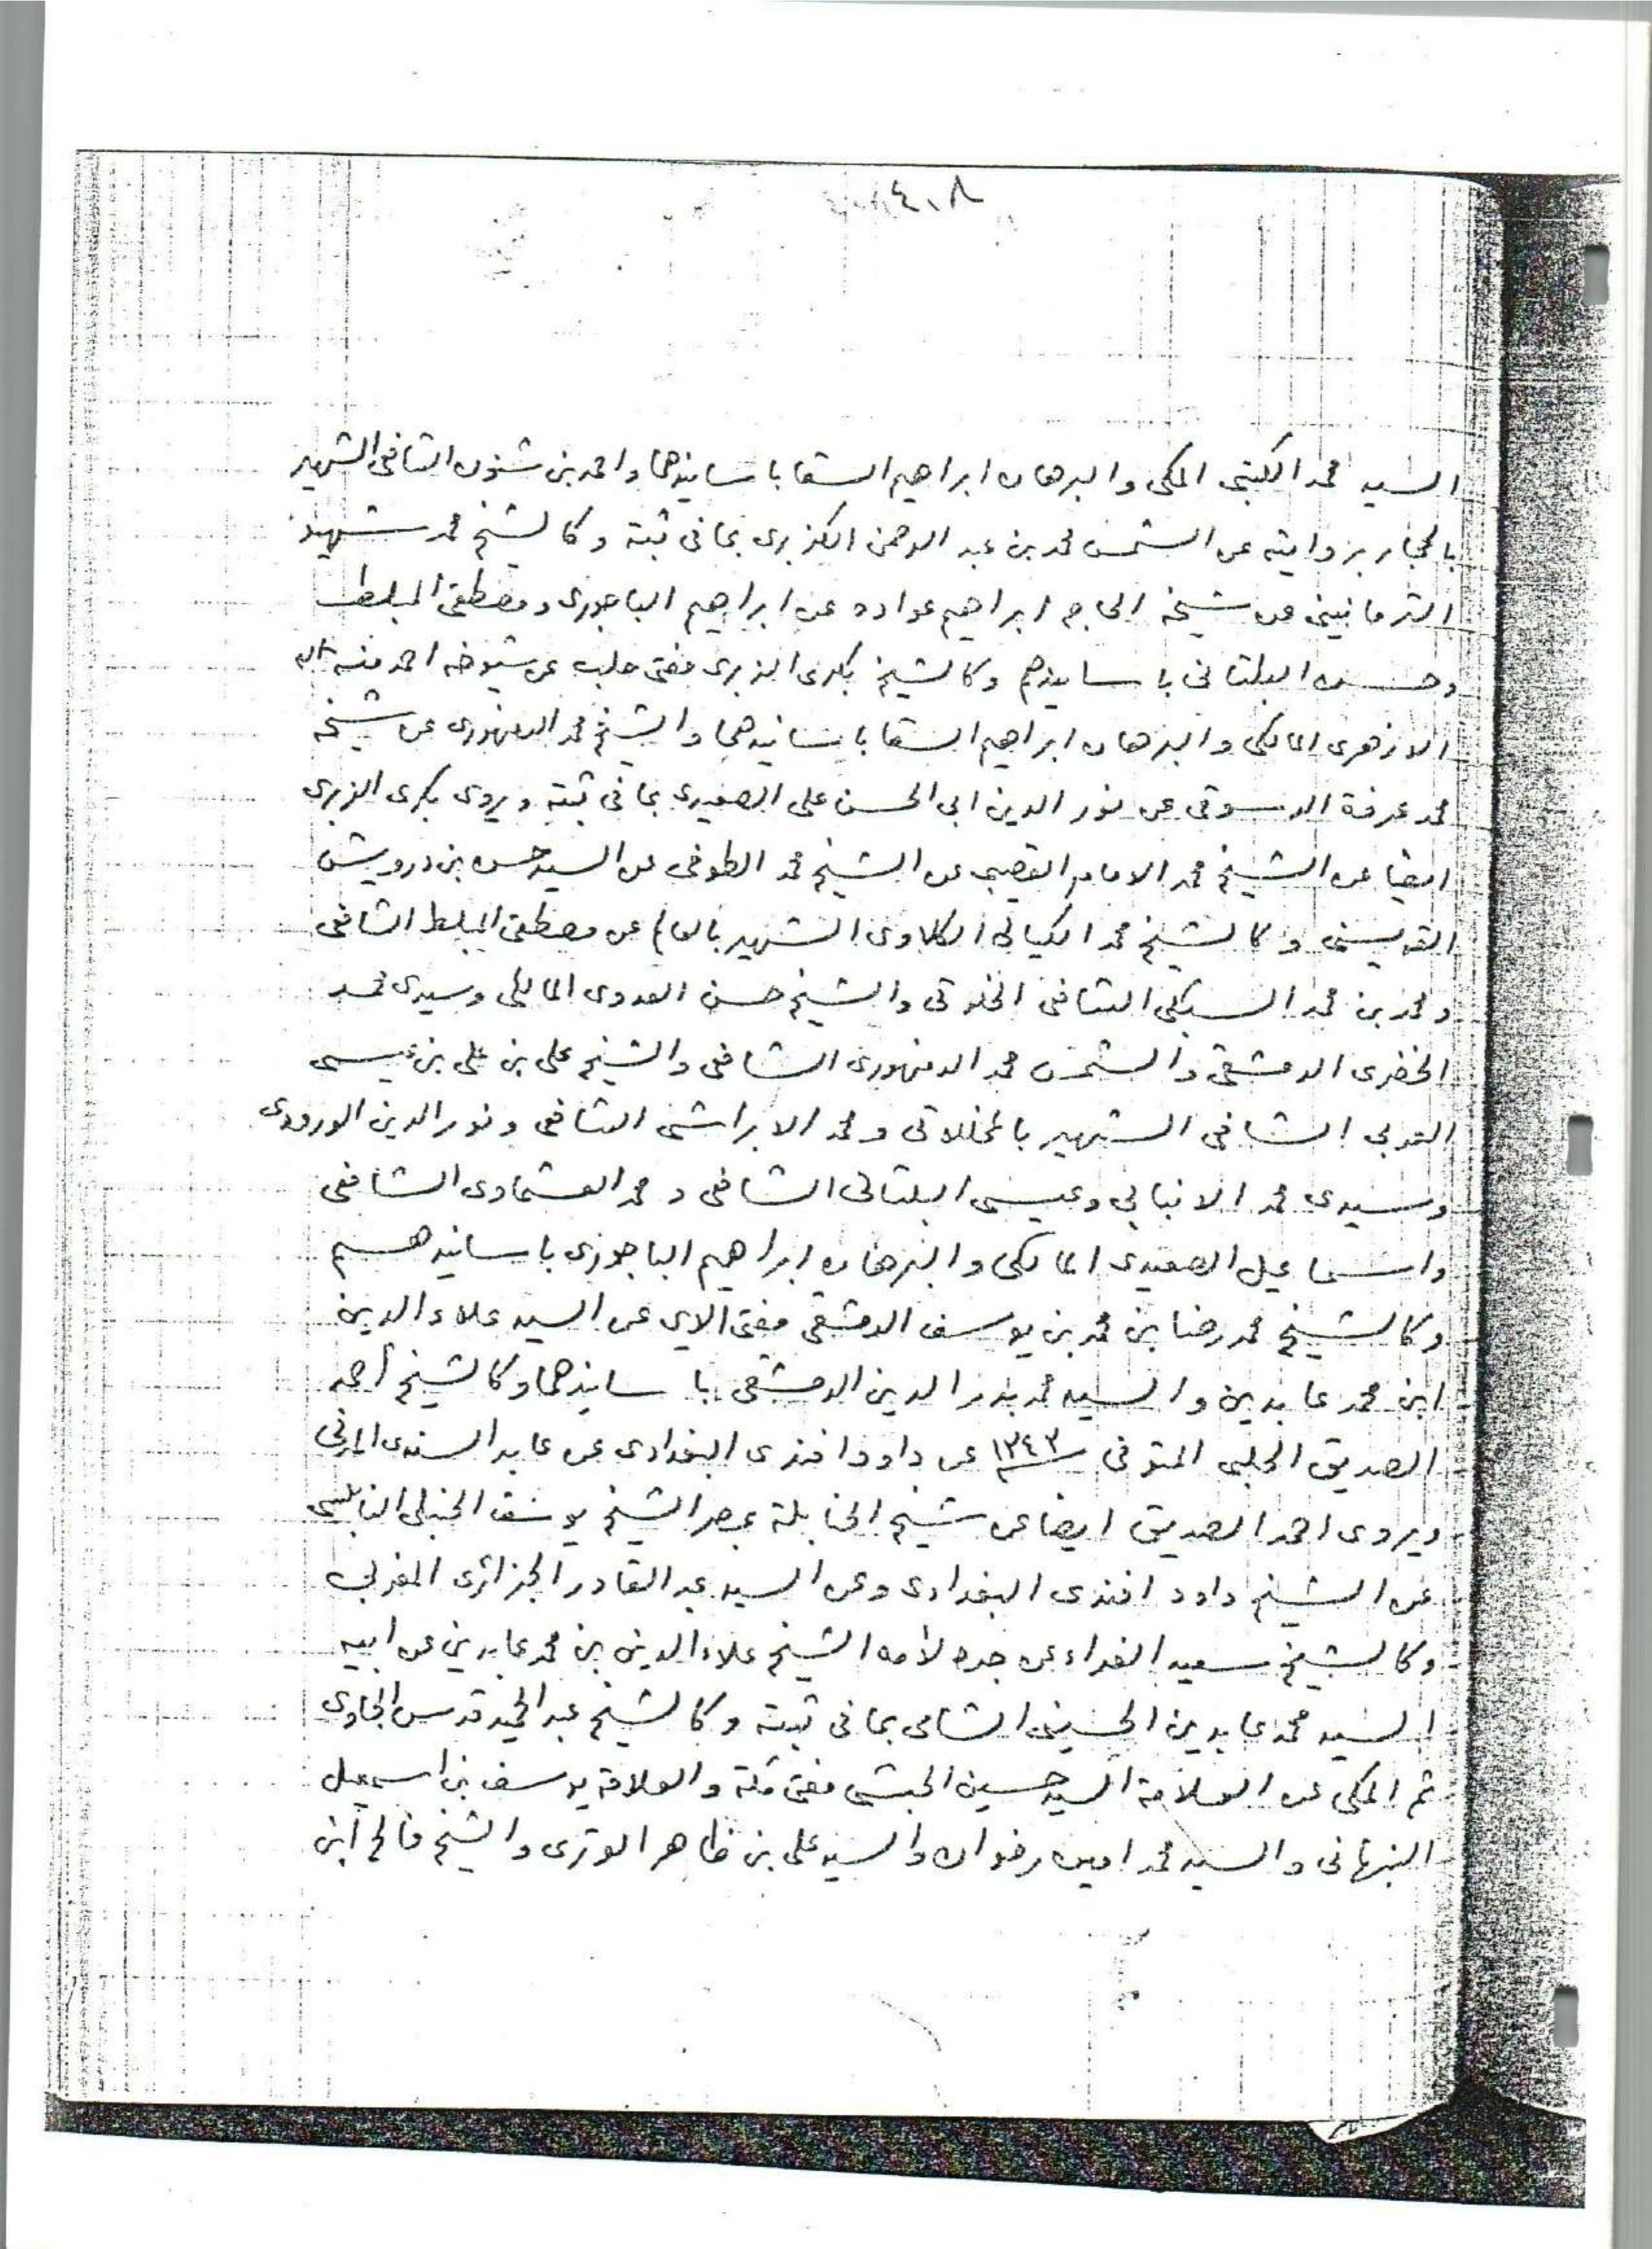 ٤٠٨
السيد محمد الكتبى المكى والبرهان ابراهيم السقا باسانيدهما واحمد بن شنون الشافى الشهير
بالحجار بروايته عن الشمس محمد بن عبد الرحمن الكزبرى بما فى ثبته وكالشيخ محمد شهيد
الترمانينى عن شيخه الحاج ابراهيم عن ابراهيم الباجورى ومصطفى المبلط
وحسن البلتانى باسانيدهم وكالشيخ بكرى الزبرى مفتى حلب عن شيوخه احمد منة الله
الازهرى المالكى والبرهان ابراهيم السقا باسانيدهما والشيخ محمد الدمنهورى عن شيخه
محمد عرفة الدسوقى عن نور الدين ابى الحسن على الصعيدى بما فى ثبته ويروى بكرى الزبرى
ايضا عن الشيخ محمد الامام القصبى عن الشيخ محمد الطوخى عن السيد حسن بن درويش
القويسنى وكالشيخ محمد الكيالى الكلاوى الشهير بالعالم عن مصطفى المبلط الشافعى
ومحمد بن محمد السبكى الشافى الخلوتى والشيخ حسن العدوى المالكى وسيدى محمد
الخضرى الدمشقى والشمس محمد الدمنهورى الشافعى والشيخ على بن على بن عيسى
الشافى الشهير بالمخللاتى ومحمد الابراشى الشافعى ونور الدين
وسيدى محمد الانبابى وعيسى البلتانى الشافعى ومحمد العشماوى الشافعى
واسماعيل الصعيدى المالكى والبرهان ابراهيم الباجورى باسانيدهم
وكالشيخ محمد رضا بن محمد بن يوسف الدمشقى مفتى الالاى عن السيد علاء الدين
ابن محمد عابدين والسيد محمد بدر الدين الدمشقى باسانيدهما وكالشيخ أحمد
الصديق الحلبى المتوفى سنة ١٣٤٣ عن داود افندى البغدادى عن عابد السندى المدنى
ويروى احمد الصديق ايضا عن شيخ الحنابلة بمصر الشيخ يوسف الحنبلى النابلسى
عن الشيخ داود افندى البغدادى وعن السيد عبد القادر الجزائرى المغربى
وكالشيخ سعيد الفراء عن جده لأمه الشيخ علاء الدين بن محمد عابدين عن ابيه
السيد محمد عابدين الحسينى الشامى بما فى ثبته وكالشيخ عبد الحميد قدس الجاوى
ثم المكى عن العلامة السيد حسين الحبشى مفتى مكة والعلامة يوسف بن اسمعيل
النبهانى والسيد محمد امين رضوان والسيد على بن ظاهر الوترى والشيخ فالح ابن